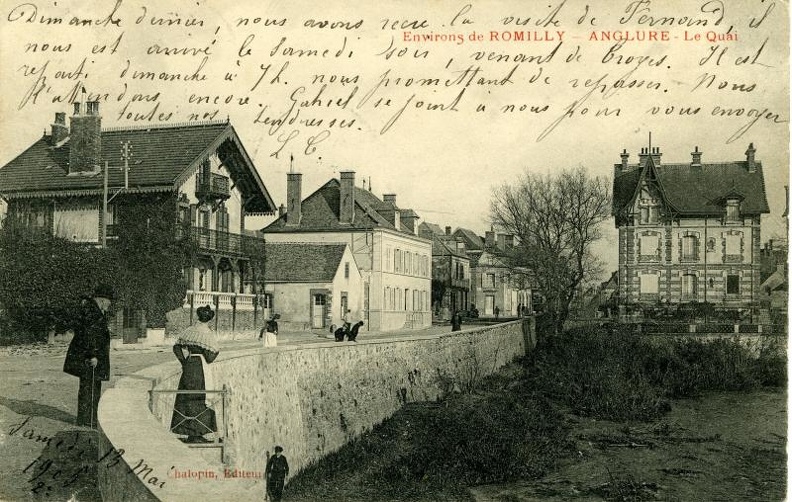 Dimanche dernier, nous avons reçu la visite de Fernand, il
Environs de ROMILLY - ANGLURE - Le Quai
nous est arrivé le Samedi soir, venant de Troyes. Il est
reparti dimanche à 7h. nous promettant de repasser. Nous
l'attendons encore. Gabriel se joint à nous pour vous envoyer
toutes nos tendresses.
L. C.
Samedi 13 Mai
1905
Chalopin, Editeur